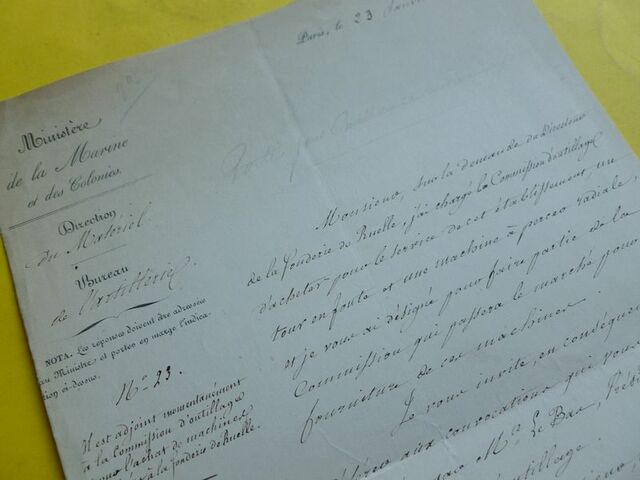 Paris, le 23 Janvier
Ministère
de la Marine
et des Colonies.
Direction
du Matériel
Bureau
de l'artillerie
NOTA. Les réponses doivent être adressées
au Ministre et porter en marge l'indica-
tion ci-dessus.
N° 23.
Il est adjoint momentanément
à la Commission d'outillage
pour l'achat de machines
à la fonderie de Ruelle.
Monsieur, sur la demande du Directeur
de la fonderie de Ruelle, j'ai chargé la Commission d'outillage
d'acheter pour le service de cet établissement, un
tour en fonte et une machine à percer radiale,
et je vous ai désigné pour faire partie de la
Commission qui passera le marché pour
fourniture de ces machines.
Je vous invite, en conséquen
aux convocations qui vous
Mr. Le Bac,
d'outillage.